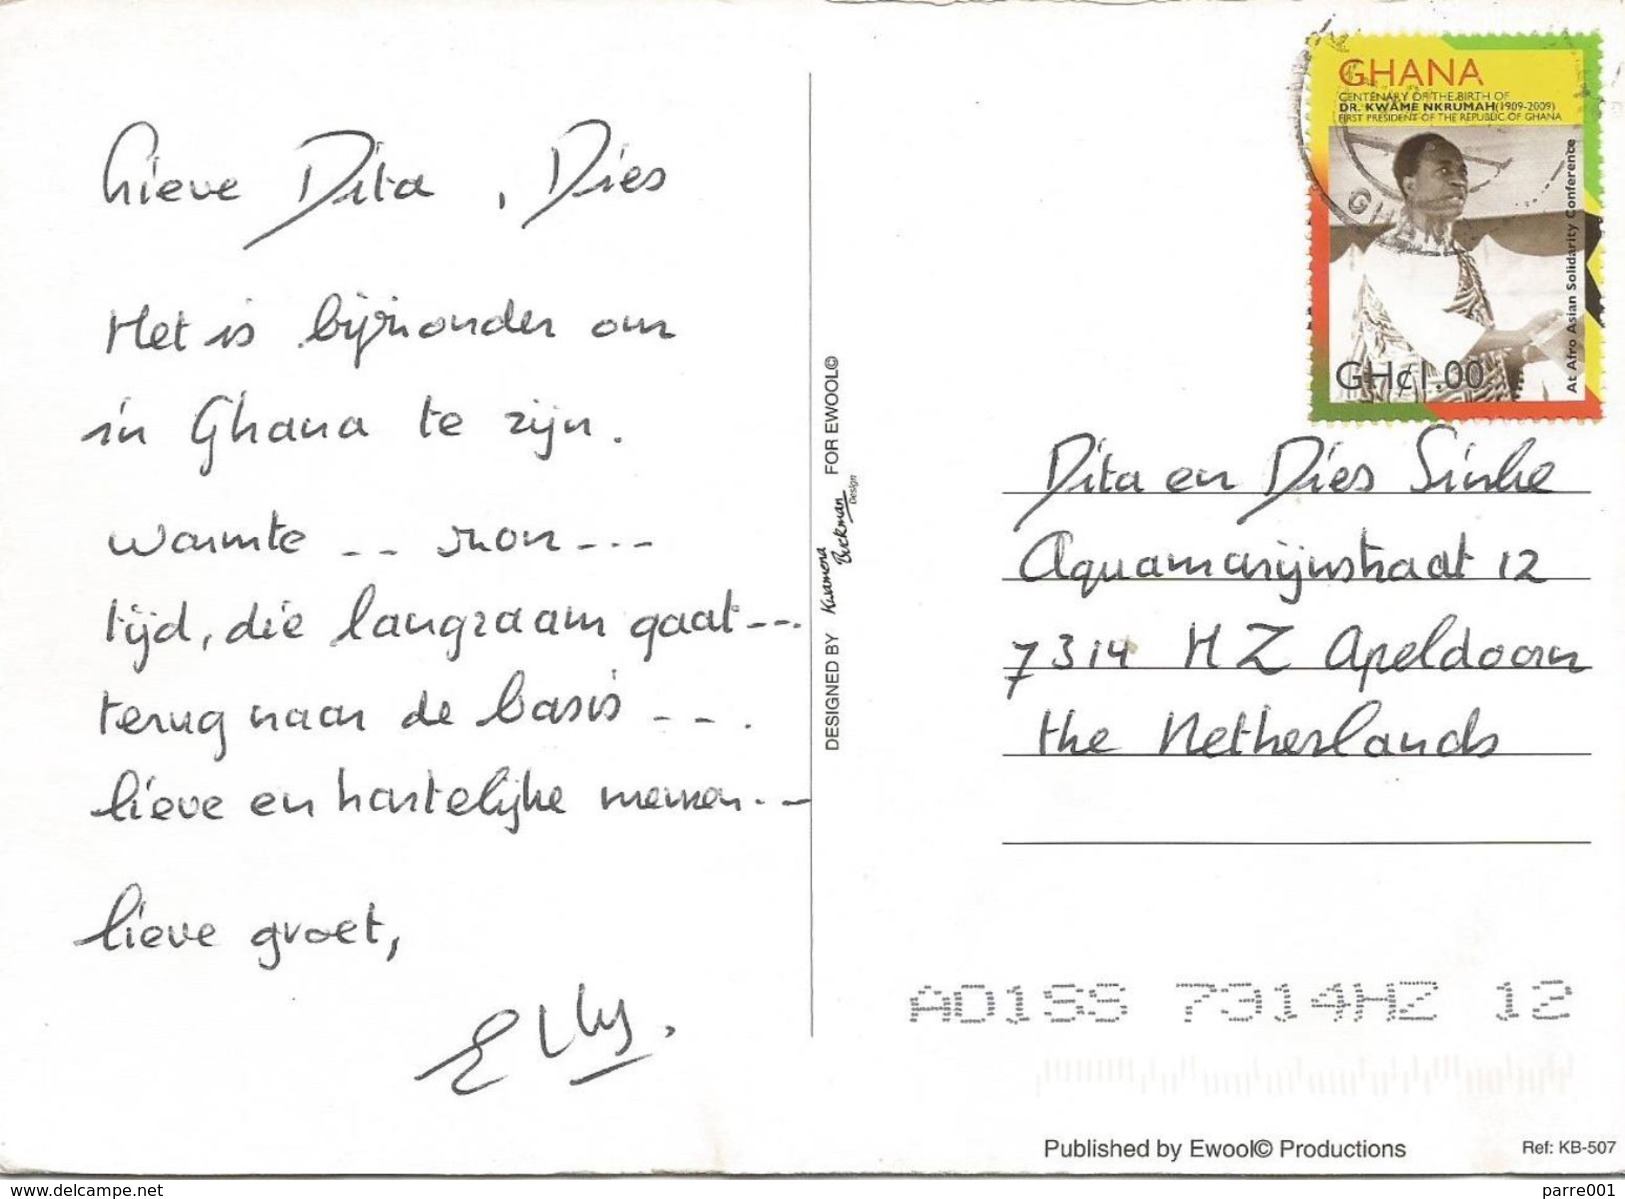 Lieve Dita, Dies
Het is bijzonder om
in Ghana te zijn.
warmte -- zon ---
tijd, die langzaam gaat ---
terug naar de basis ---.
lieve en hartelijke mensen.--
lieve groet,
Elly.
DESIGNED BY Kwamena Buckman Design FOR EWOOL©
GHANA
CENTENARY OF THE BIRTH OF
DR. KWAME NKRUMAH (1909-2009)
FIRST PRESIDENT OF THE REPUBLIC OF GHANA
At Afro Asian Solidarity Conference
GH¢1.00
GHANA
Dita en Dies Sinke
Aquamarijnstraat 12
7314 HZ Apeldoorn
the Netherlands
AD1SS 7314HZ 12
Published by Ewool© Productions
Ref: KB-507
www.delcampe.net
parre001